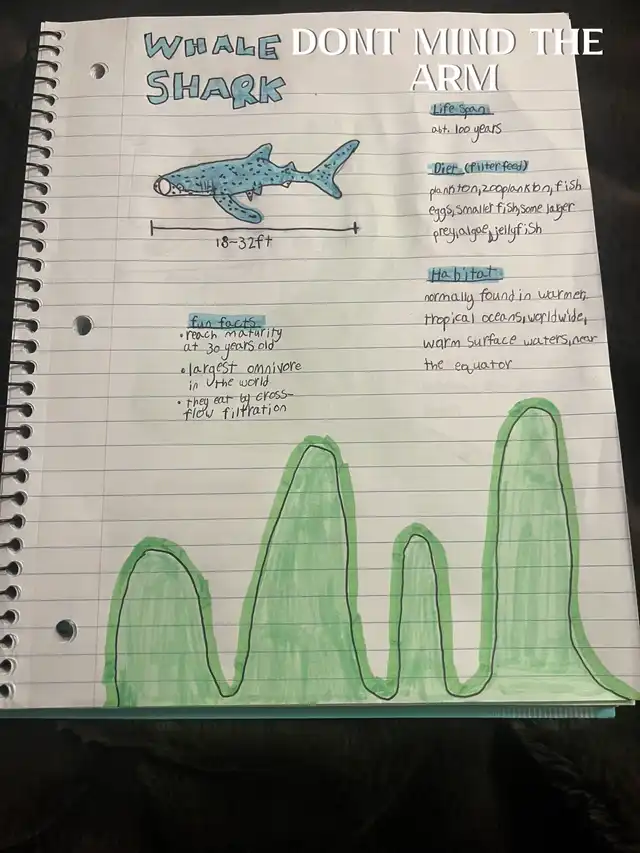 WHALE
SHARK
DONT MIND THE
ARM
Life Span
abt. 100 years
Diet (filter feed)
plankton, zooplankton, fish
eggs, smaller fish, some larger
prey, algae, jellyfish
18-32ft
Habitat
normally found in warmer,
tropical oceans, worldwide,
warm surface waters, near
the equator
fun facts
• reach maturity
at 30 years old
• largest omnivore
in the world
• they eat by cross-
flow filtration